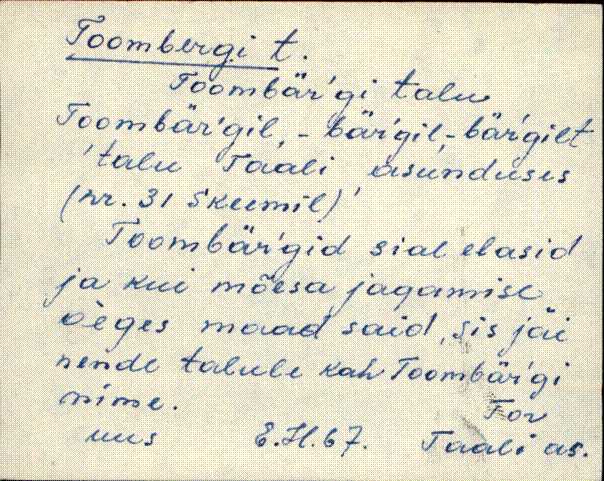 Toombergi t.
Toombär'gi talu
Toombär'gil, -bär'gil, -bär'gilt
'talu Taali asunduses
(nr. 31 skeemil)'
Toombär'gid sial elasid
ja kui mõesa jagamise
aeges maad said, sis jäi
nende talule kah Toombär'gi
nime.
Tor
uus E.H.67. Taali as.